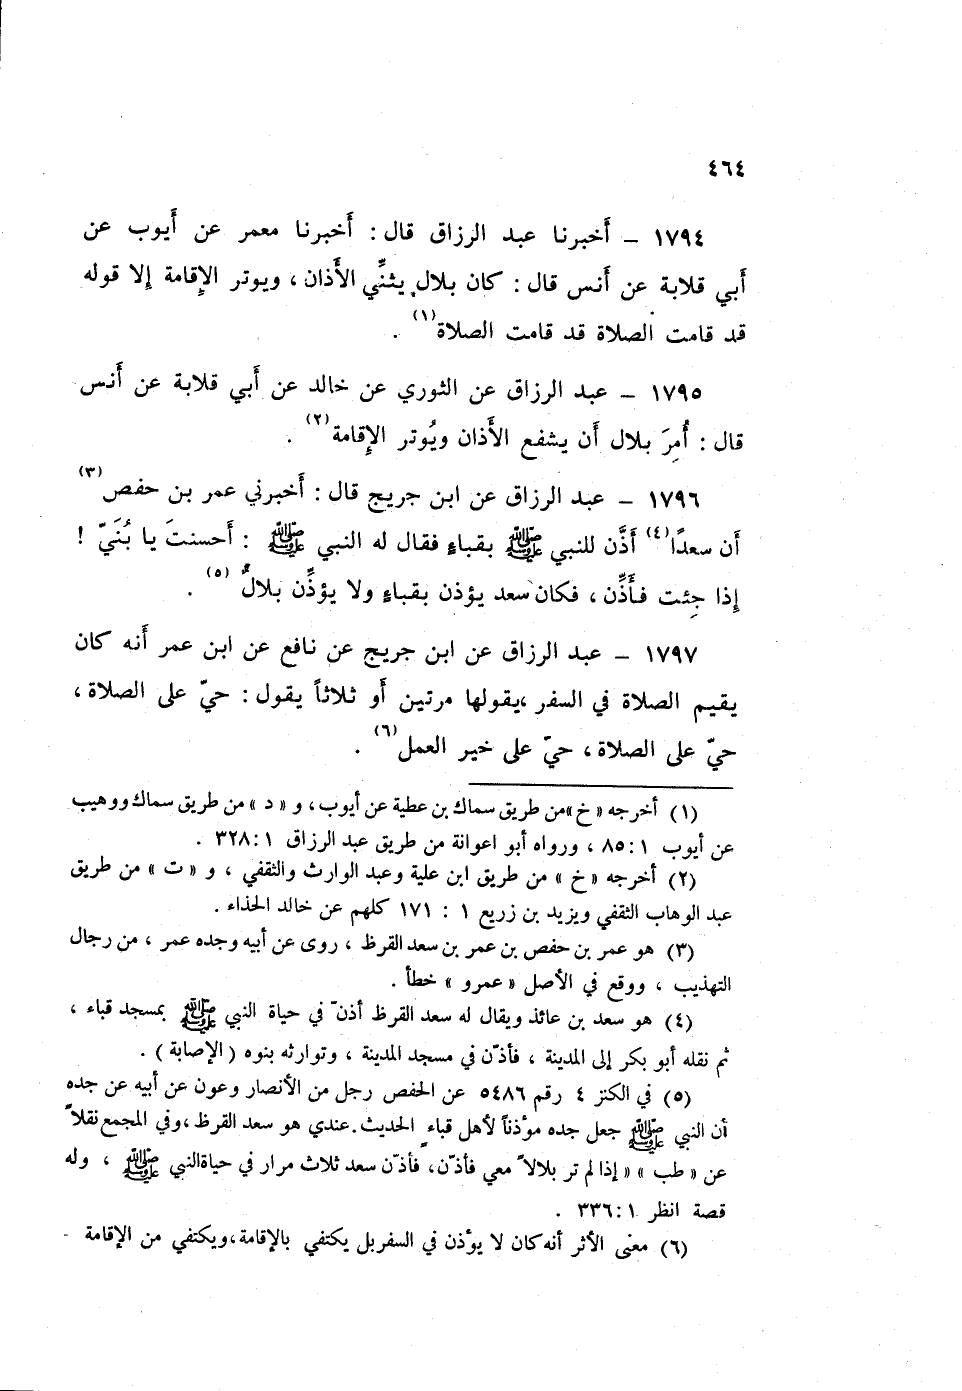 ٤٦٤
١٧٩٤ – أخبرنا عبد الرزاق قال : أخبرنا معمر عن أيوب عن
أبي قلابة عن أنس قال : كان بلال يثنِّي الأذان ، ويوتر الإقامة إلا قوله
قد قامت الصلاة قد قامت الصلاة(١) .
١٧٩٥ – عبد الرزاق عن الثوري عن خالد عن أبي قلابة عن أنس
قال : أُمِرَ بلال أن يشفع الأذان ويُوتر الإقامة(٢) .
١٧٩٦ – عبد الرزاق عن ابن جريج قال : أخبرني عمر بن حفص(٣)
أن سعدًا(٤) أذَّن للنبي ﷺ بقباءٍ فقال له النبي ﷺ : أحسنتَ يا بُنَيّ !
إذا جِئت فأَذِّن ، فكان سعد يؤذن بقباءٍ ولا يؤذِّن بلالٌ (٥) .
١٧٩٧ – عبد الرزاق عن ابن جريج عن نافع عن ابن عمر أنه كان
يقيم الصلاة في السفر ،يقولها مرتين أو ثلاثاً يقول : حيّ على الصلاة ،
حيّ على الصلاة ، حيّ على خير العمل(٦) .
(١) أخرجه « خ »من طريق سماك بن عطية عن أيوب ، و « د » من طريق سماك ووهيب
عن أيوب ١ :٨٥ ، ورواه أبو اعوانة من طريق عبد الرزاق ١ :٣٢٨ .
(٢) أخرجه « خ » من طريق ابن علية وعبد الوارث والثقفي ، و « ت » من طريق
عبد الوهاب الثقفي ويزيد بن زريع ١ : ١٧١ كلهم عن خالد الحذاء .
(٣) هو عمر بن حفص بن عمر بن سعد القرظ ، روى عن أبيه وجده عمر ، من رجال
التهذيب ، ووقع في الأصل « عمرو » خطأ .
(٤) هو سعد بن عائذ ويقال له سعد القرظ أذنّ في حياة النبي ﷺ بمسجد قباء ،
ثم نقله أبو بكر إلى المدينة ، فأذّن في مسجد المدينة ، وتوارثه بنوه ( الإصابة ) .
(٥) في الكنز ٤ رقم ٥٤٨٦ عن الحفص رجل من الأنصار وعون عن أبيه عن جده
أن النبي ﷺ جعل جده مؤذناً لأهل قباءٍ الحديث . عندي هو سعد القرظ ،وفي المجمع نقلاً
عن « طب » « إذا لم تر بلالاً معي فأذّن، فأذّن سعد ثلاث مرار في حياةالنبي ﷺ ، وله
قصة انظر ١ :٣٣٦ .
(٦) معنى الأثر أنه كان لا يؤذن في السفربل يكتفي بالإقامة ،ويكتفي من الإقامة -